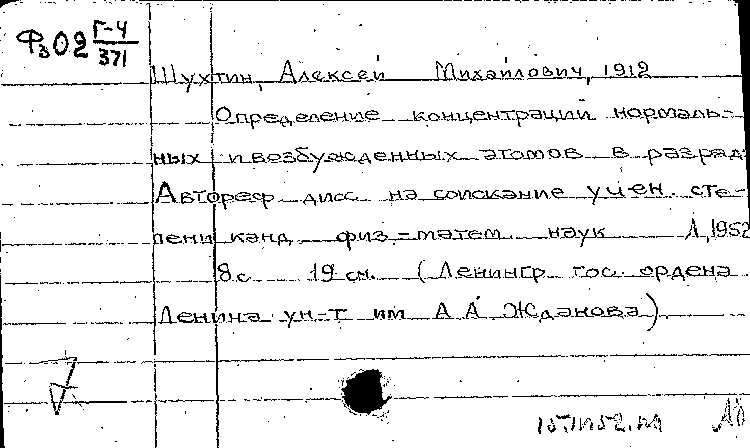 Фз02 Г-4
371
Шухтин, Алексей Михайлович, 1912
Определение концентраций нормаль-
ных и возбужденных атомов в разряд.
Автореф. дисс. на соискание учен. сте-
пени канд. физ.-матем. наук Л, 1952
8с 19 см. (Ленингр. гос. ордена
Ленина ун-т им А А Жданова)